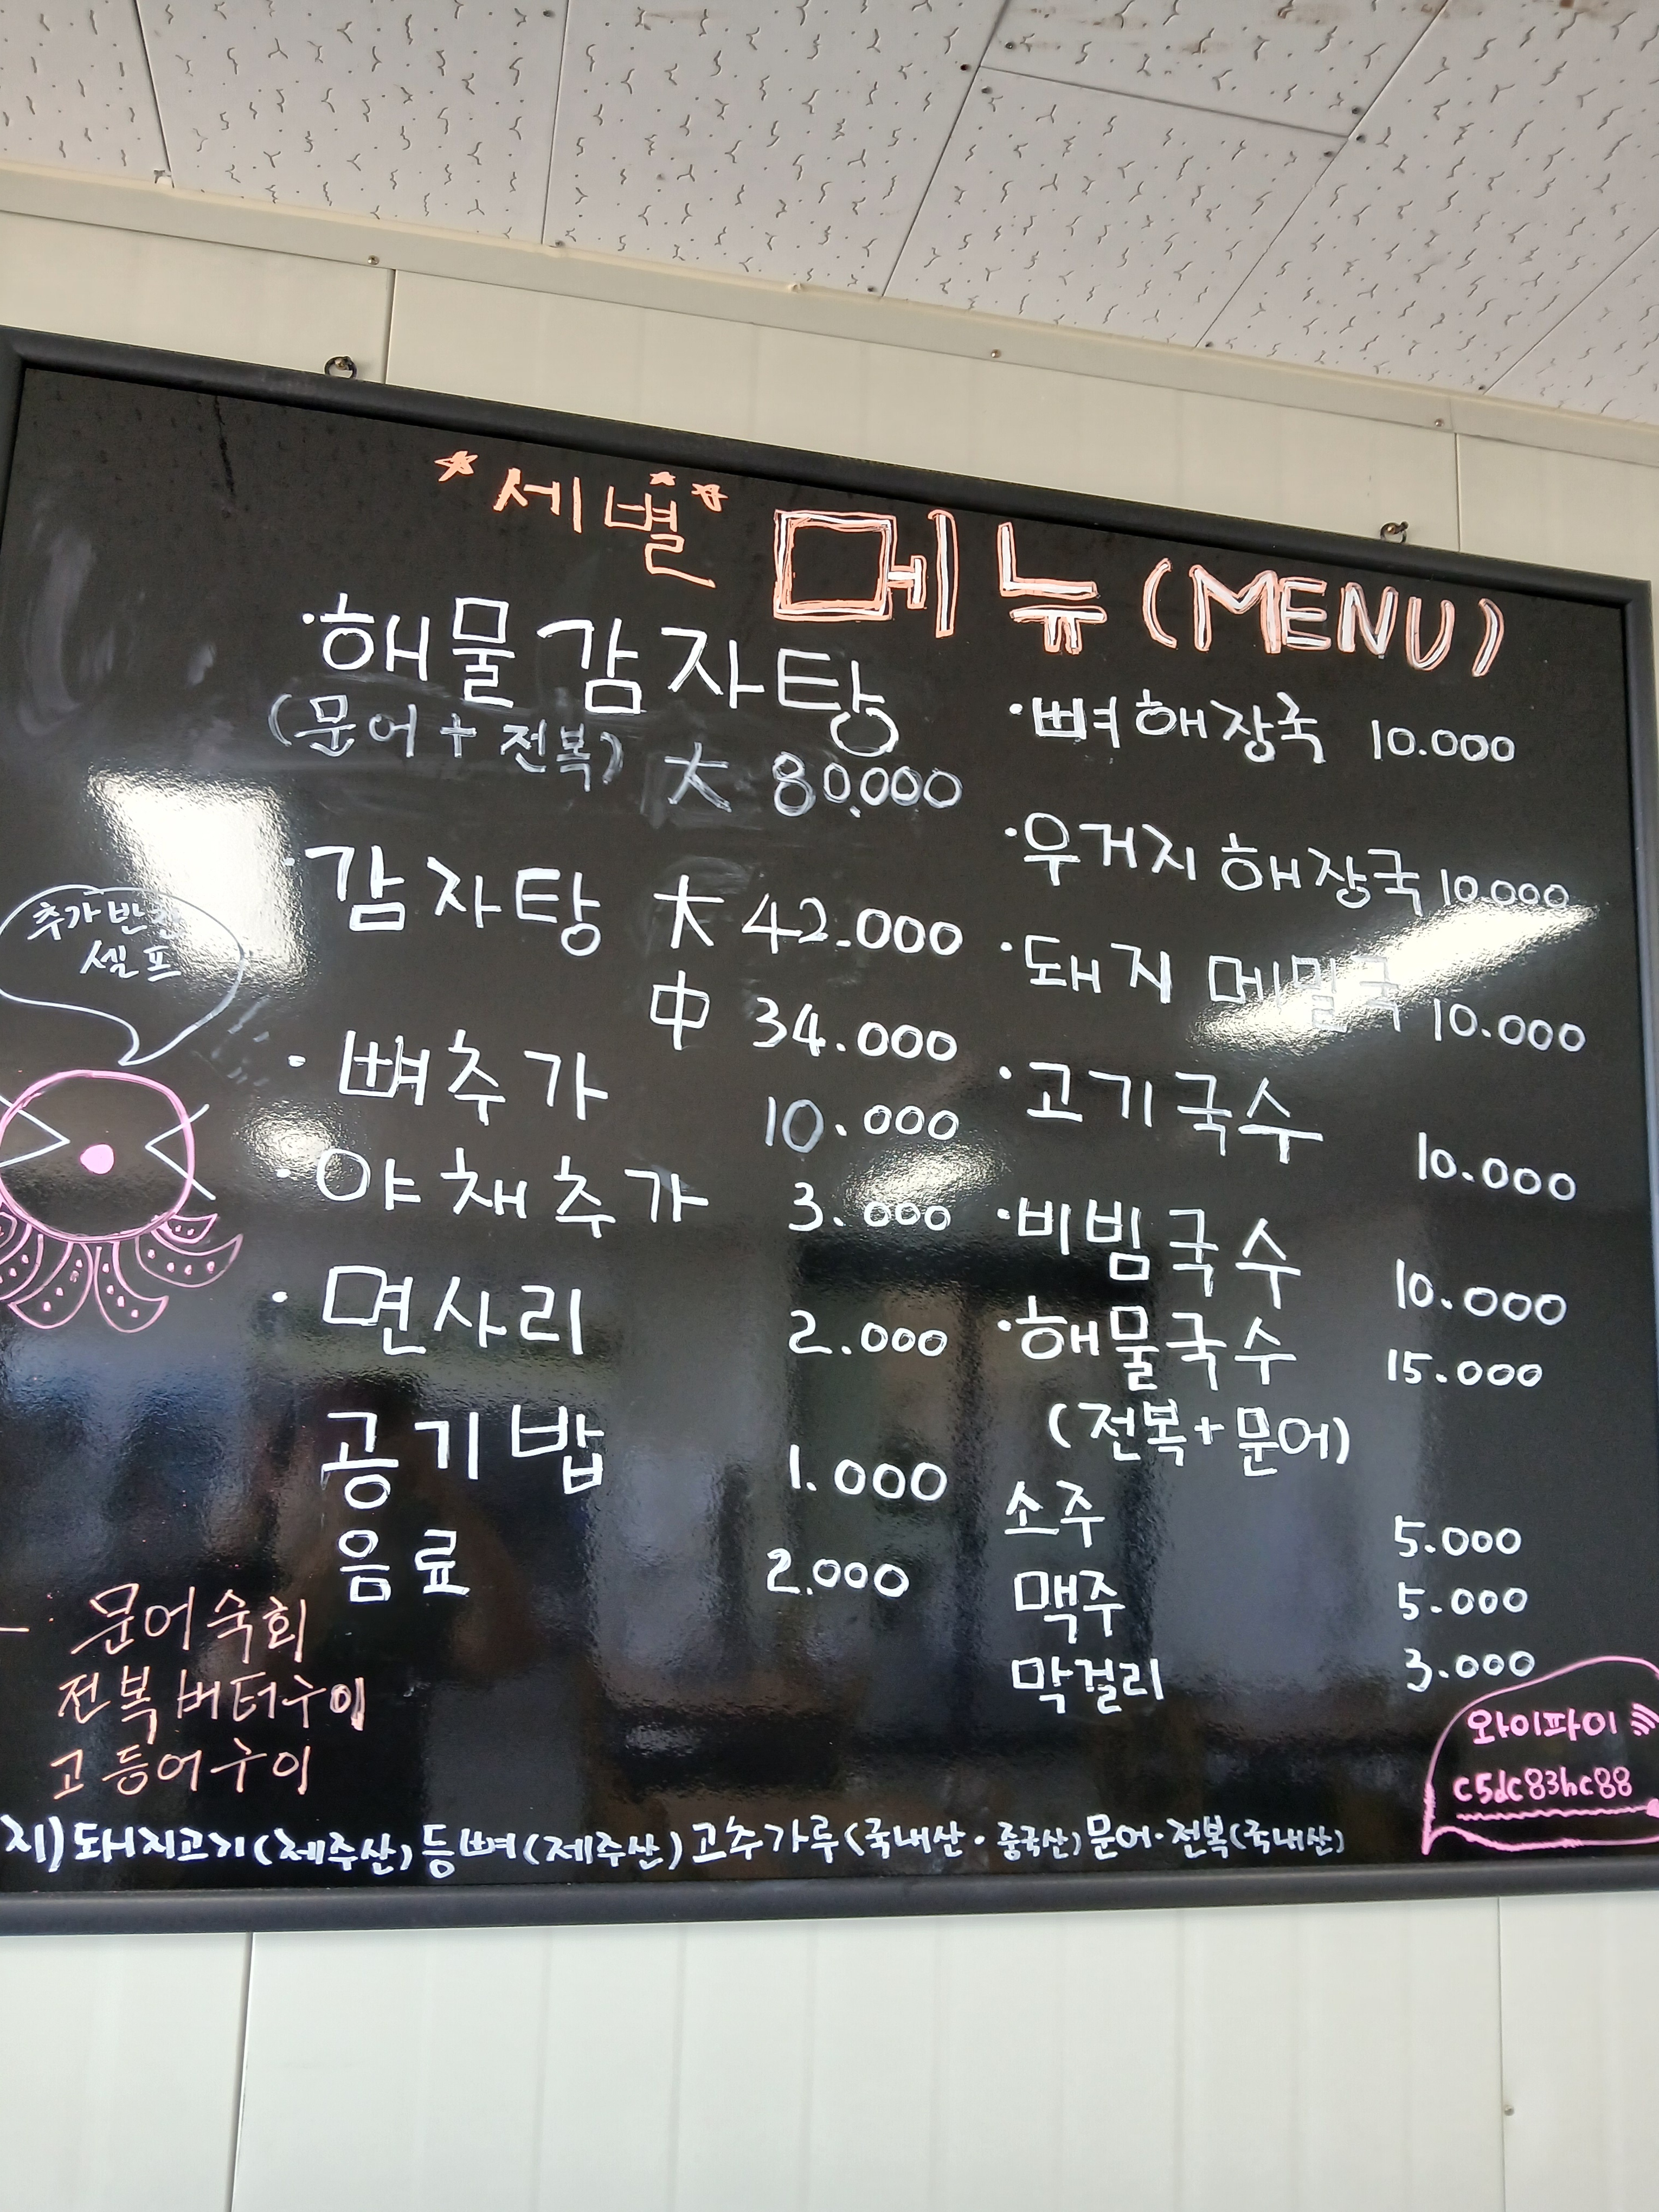 *세별* 메뉴 (MENU)
·해물감자탕
(문어 + 전복) 大 80.000
·감자탕 大 42.000
中 34.000
·뼈추가 10.000
·야채추가 3.000
·면사리 2.000
공기밥 1.000
음료 2.000
·뼈해장국 10.000
·우거지 해장국 10.000
·돼지 메밀국 10.000
·고기국수 10.000
·비빔국수 10.000
·해물국수 15.000
(전복+문어)
소주 5.000
맥주 5.000
막걸리 3.000
추가반찬
셀프
문어숙회
전복버터구이
고등어구이
와이파이
c5dc83hc88
지) 돼지고기(제주산) 등뼈(제주산) 고추가루(국내산·중국산) 문어·전복(국내산)